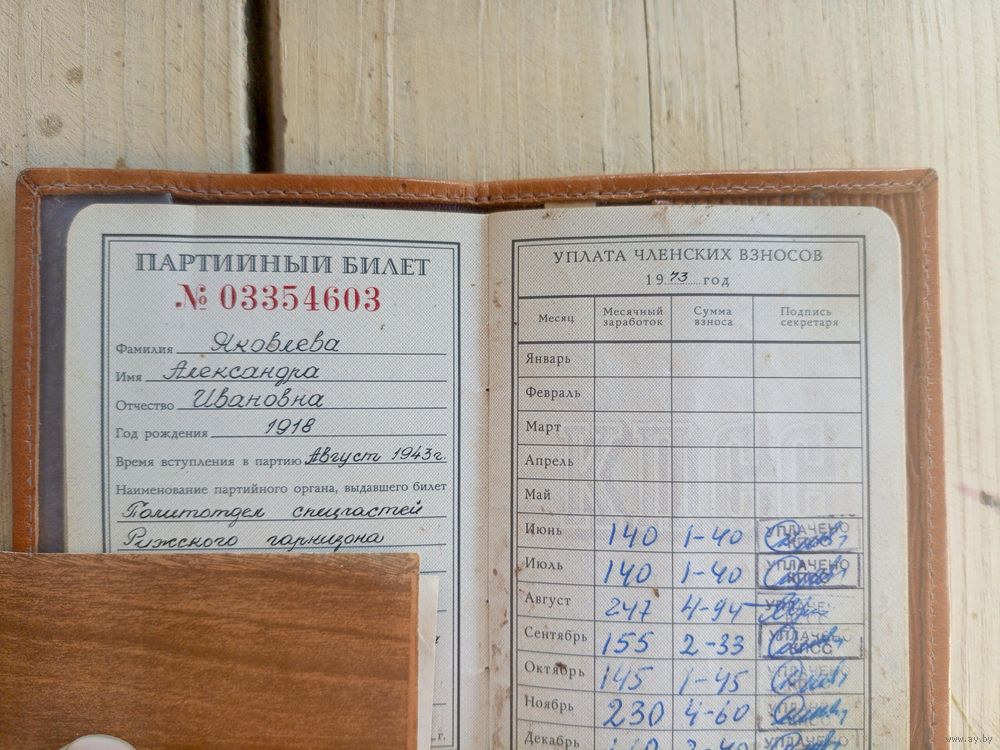 ПАРТИЙНЫЙ БИЛЕТ
№ 03354603
Фамилия Яковлева
Имя Александра
Отчество Ивановна
Год рождения 1918
Время вступления в партию Август 1943 г.
Наименование партийного органа, выдавшего билет
Политотдел спецчастей
Рижского гарнизона
г.
УПЛАТА ЧЛЕНСКИХ ВЗНОСОВ
1973 год
Месяц Месячный заработок Сумма взноса Подпись секретаря
Январь
Февраль
Март
Апрель
Май
Июнь 140 1-40 УПЛАЧЕНО КПСС
Июль 140 1-40 УПЛАЧЕНО КПСС
Август 247 4-94 УПЛАЧЕНО
Сентябрь 155 2-33 УПЛАЧЕНО КПСС
Октябрь 145 1-45 УПЛАЧЕНО
Ноябрь 230 4-60
Декабрь
www.ay.by